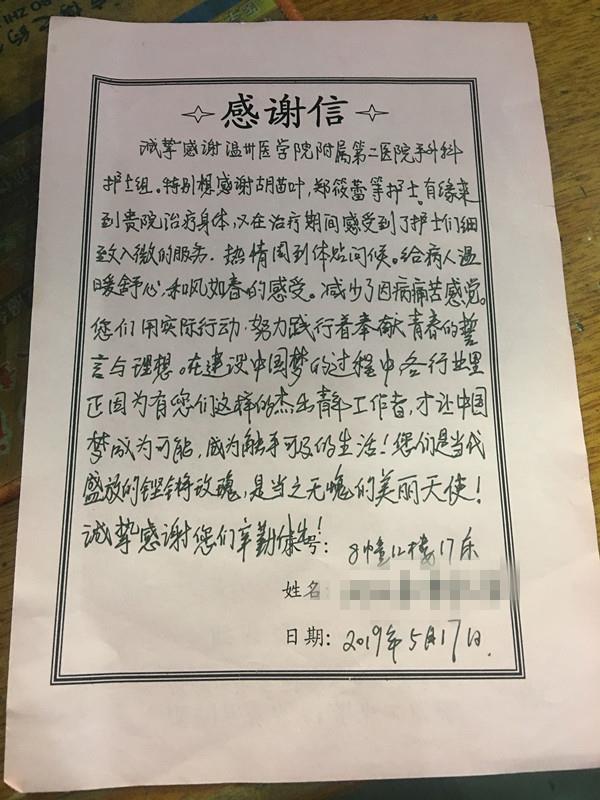 感谢信
诚挚感谢温州医学院附属第二医院手外科
护士组。特别想感谢胡苗叶,郑筱蕾等护士。有缘来
到贵院治疗身体,又在治疗期间感受到了护士们细
致入微的服务,热情周到体贴问候。给病人温
暖舒心,和风如春的感受。减少了因病痛苦感觉。
您们用实际行动,努力践行着奉献青春的誓
言与理想。在建设中国梦的过程中各行业里
正因为有您们这样的杰出青年工作者,才让中国
梦成为可能,成为触手可及的生活!您们是当代
盛放的铿锵玫瑰,是当之无愧的美丽天使!
诚挚感谢您们辛勤 号:8幢12楼17床
姓名
日期:2019年5月17日.